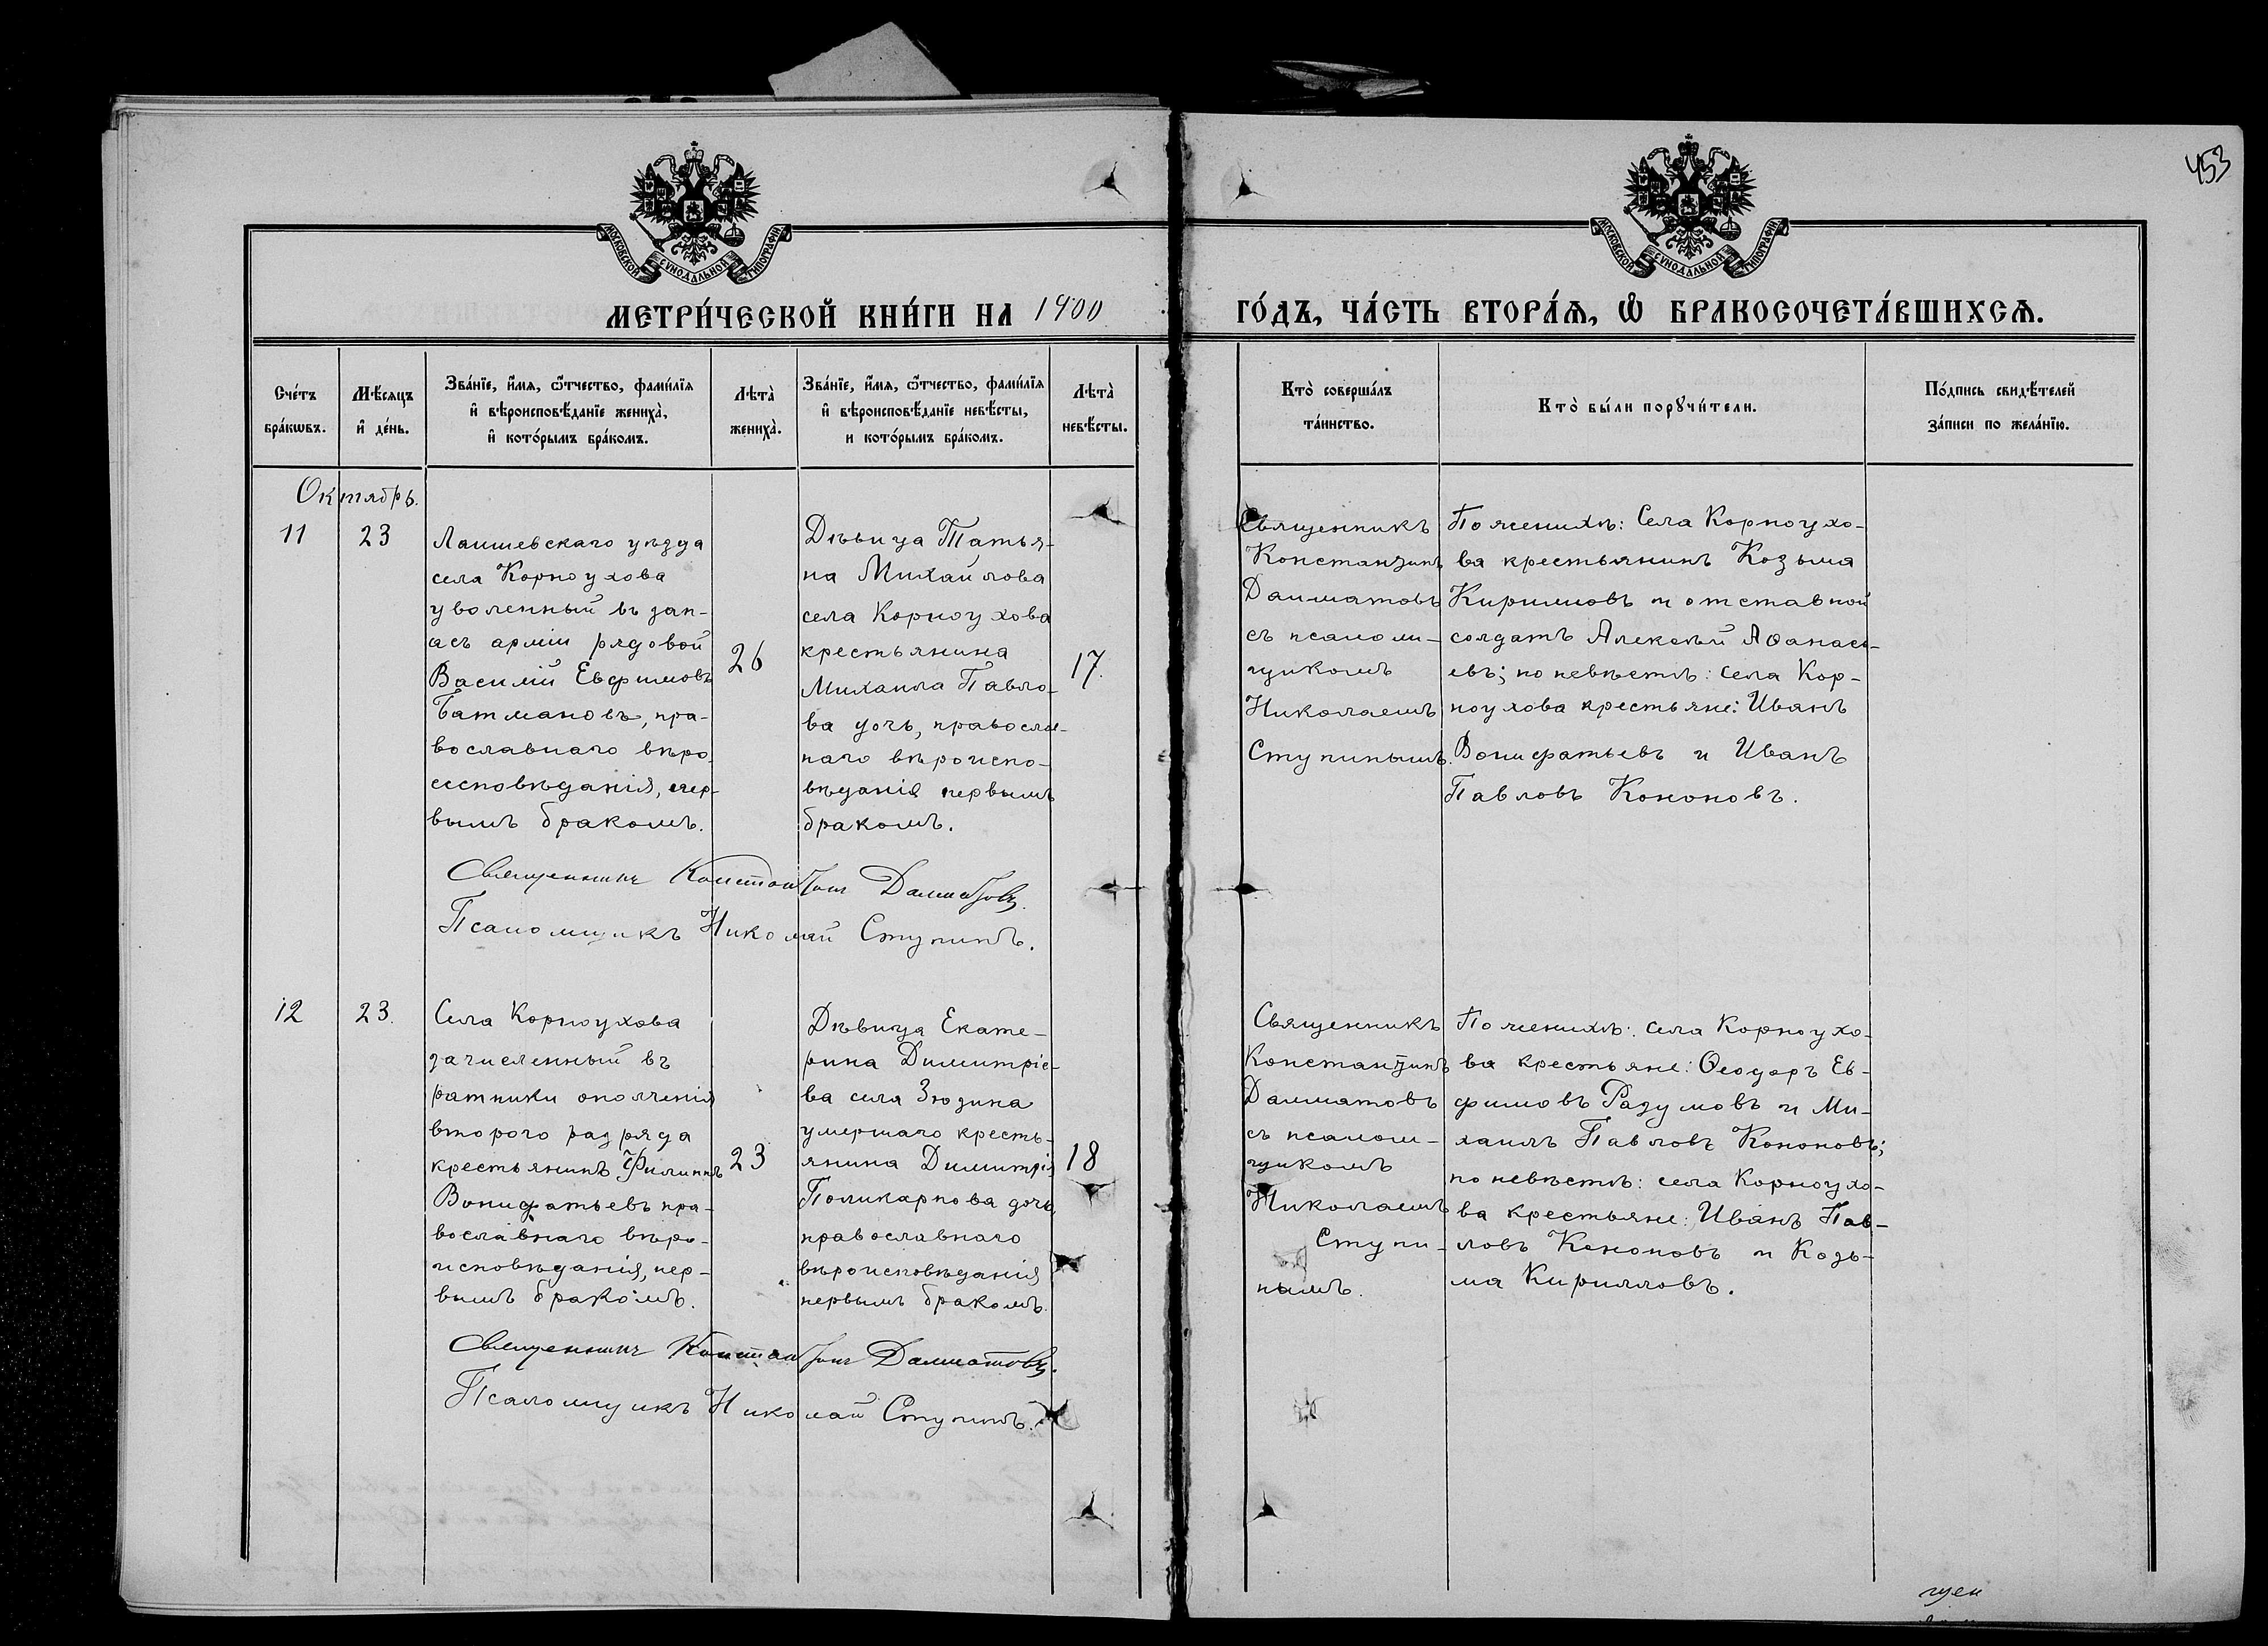 453
МОСКОВСКОЙ СѴНОДАЛЬНОЙ ТИПОГРАФІИ
МОСКОВСКОЙ СѴНОДАЛЬНОЙ ТИПОГРАФІИ
МЕТРИ́ЧЕСКОЙ КНИ́ГИ НА 1900
ГО́ДЪ, ЧА́СТЬ ВТОРА́Ѧ, Ѽ БРАКОСОЧЕТА́ВШИХСѦ.
Сче́тъ
бра́кѡвъ.
Мѣ́сяцъ
и҆ де́нь.
Зва́нїе, и҆́мя, ѻ҆́тчество, фами́лїя
и҆ вѣроисповѣ́данїе жениха̀,
и҆ кото́рымъ бра́комъ.
Лѣта̀
жениха̀.
Зва́нїе, и҆́мя, ѻ҆́тчество, фами́лїя
и҆ вѣроисповѣ́данїе невѣ́сты,
и кото́рымъ бра́комъ.
Лѣта̀
невѣ́сты.
Кто̀ соверша́лъ
та́инство.
Кто̀ бы́ли порꙋчи́тели.
По́дпись свидѣ́телей
за́писи по жела́нїю.
Октябрь.
11
23
Лаишевскаго уѣзда
села Корноухова
уволенный въ зап-
асъ арміи рядовой
Василій Евфимовъ
Батмановъ, пра-
вославнаго вѣро-
исповѣданія, пер-
вымъ бракомъ.
26
Дѣвица Татья-
на Михайлова
села Корноухова
крестьянина
Михаила Павло-
ва дочь, православ-
наго вѣроиспо-
вѣданія первымъ
бракомъ.
17.
Священникъ
Константинъ
Далматовъ
съ псалом-
щикомъ
Николаемъ
Ступинымъ.
По женихѣ: Села Корноухо-
ва крестьянинъ Козьма
Кирилловъ и отставной
солдатъ Алексѣй Аѳанась-
евъ; по невѣстѣ: села Кор-
ноухова крестьяне: Иванъ
Вонифатьевъ и Иванъ
Павловъ Кононовъ.
Священникъ Константинъ Далматовъ.
Псаломщикъ Николай Ступинъ.
12
23.
Села Корноухова
зачисленный въ
ратники ополченія
второго разряда
крестьянинъ Филиппъ
Вонифатьевъ пра-
вославнаго вѣро-
исповѣданія, пер-
вымъ бракомъ.
23
Дѣвица Екате-
рина Димитріе-
ва села Зюзина
умершаго кресть-
янина Димитрія
Поликарпова дочь,
православнаго
вѣроисповѣданія
первымъ бракомъ.
18
Священникъ
Константинъ
Далматовъ
съ псалом-
щикомъ
Николаемъ
Ступи-
нымъ.
По женихѣ: села Корноухо-
ва крестьяне: Ѳеодоръ Ев-
фимовъ Разумовъ и Ми-
хаилъ Павловъ Кононовъ;
по невѣстѣ: села Корноухо-
ва крестьяне: Иванъ Пав-
ловъ Кононовъ и Козь-
ма Кирилловъ.
Священникъ Константинъ Далматовъ.
Псаломщикъ Николай Ступинъ.